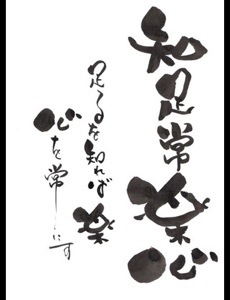 知足常楽心
足るを知れば
楽
心を常にす